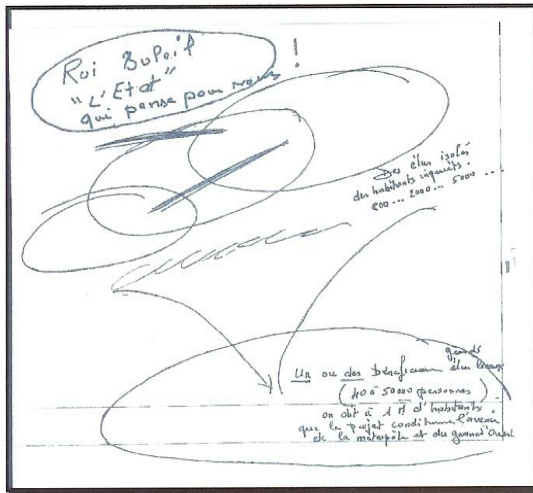 Roi Soleil
"L'Etat"
qui pense pour nous !
Des élus isolés
des habitants inquiets.
200 ... 2000 ... 5000 ...
grands
Un ou des bénéficiaires élus locaux
(40 à 50000 personnes)
on dit à 1 M d'habitants
que le projet conditionne l'avenir
de la métropole et du grand Ouest